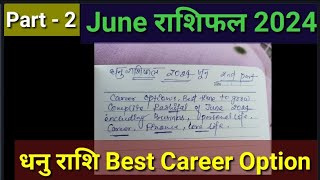 Part - 2
June राशिफल 2024
धनु राशिफल 2024 जून
2nd part
Career options, Best time to grow
Complete Rashifal of June 2024
including Business, Personal life,
Career, Finance, love life.
धनु राशि Best Career Option